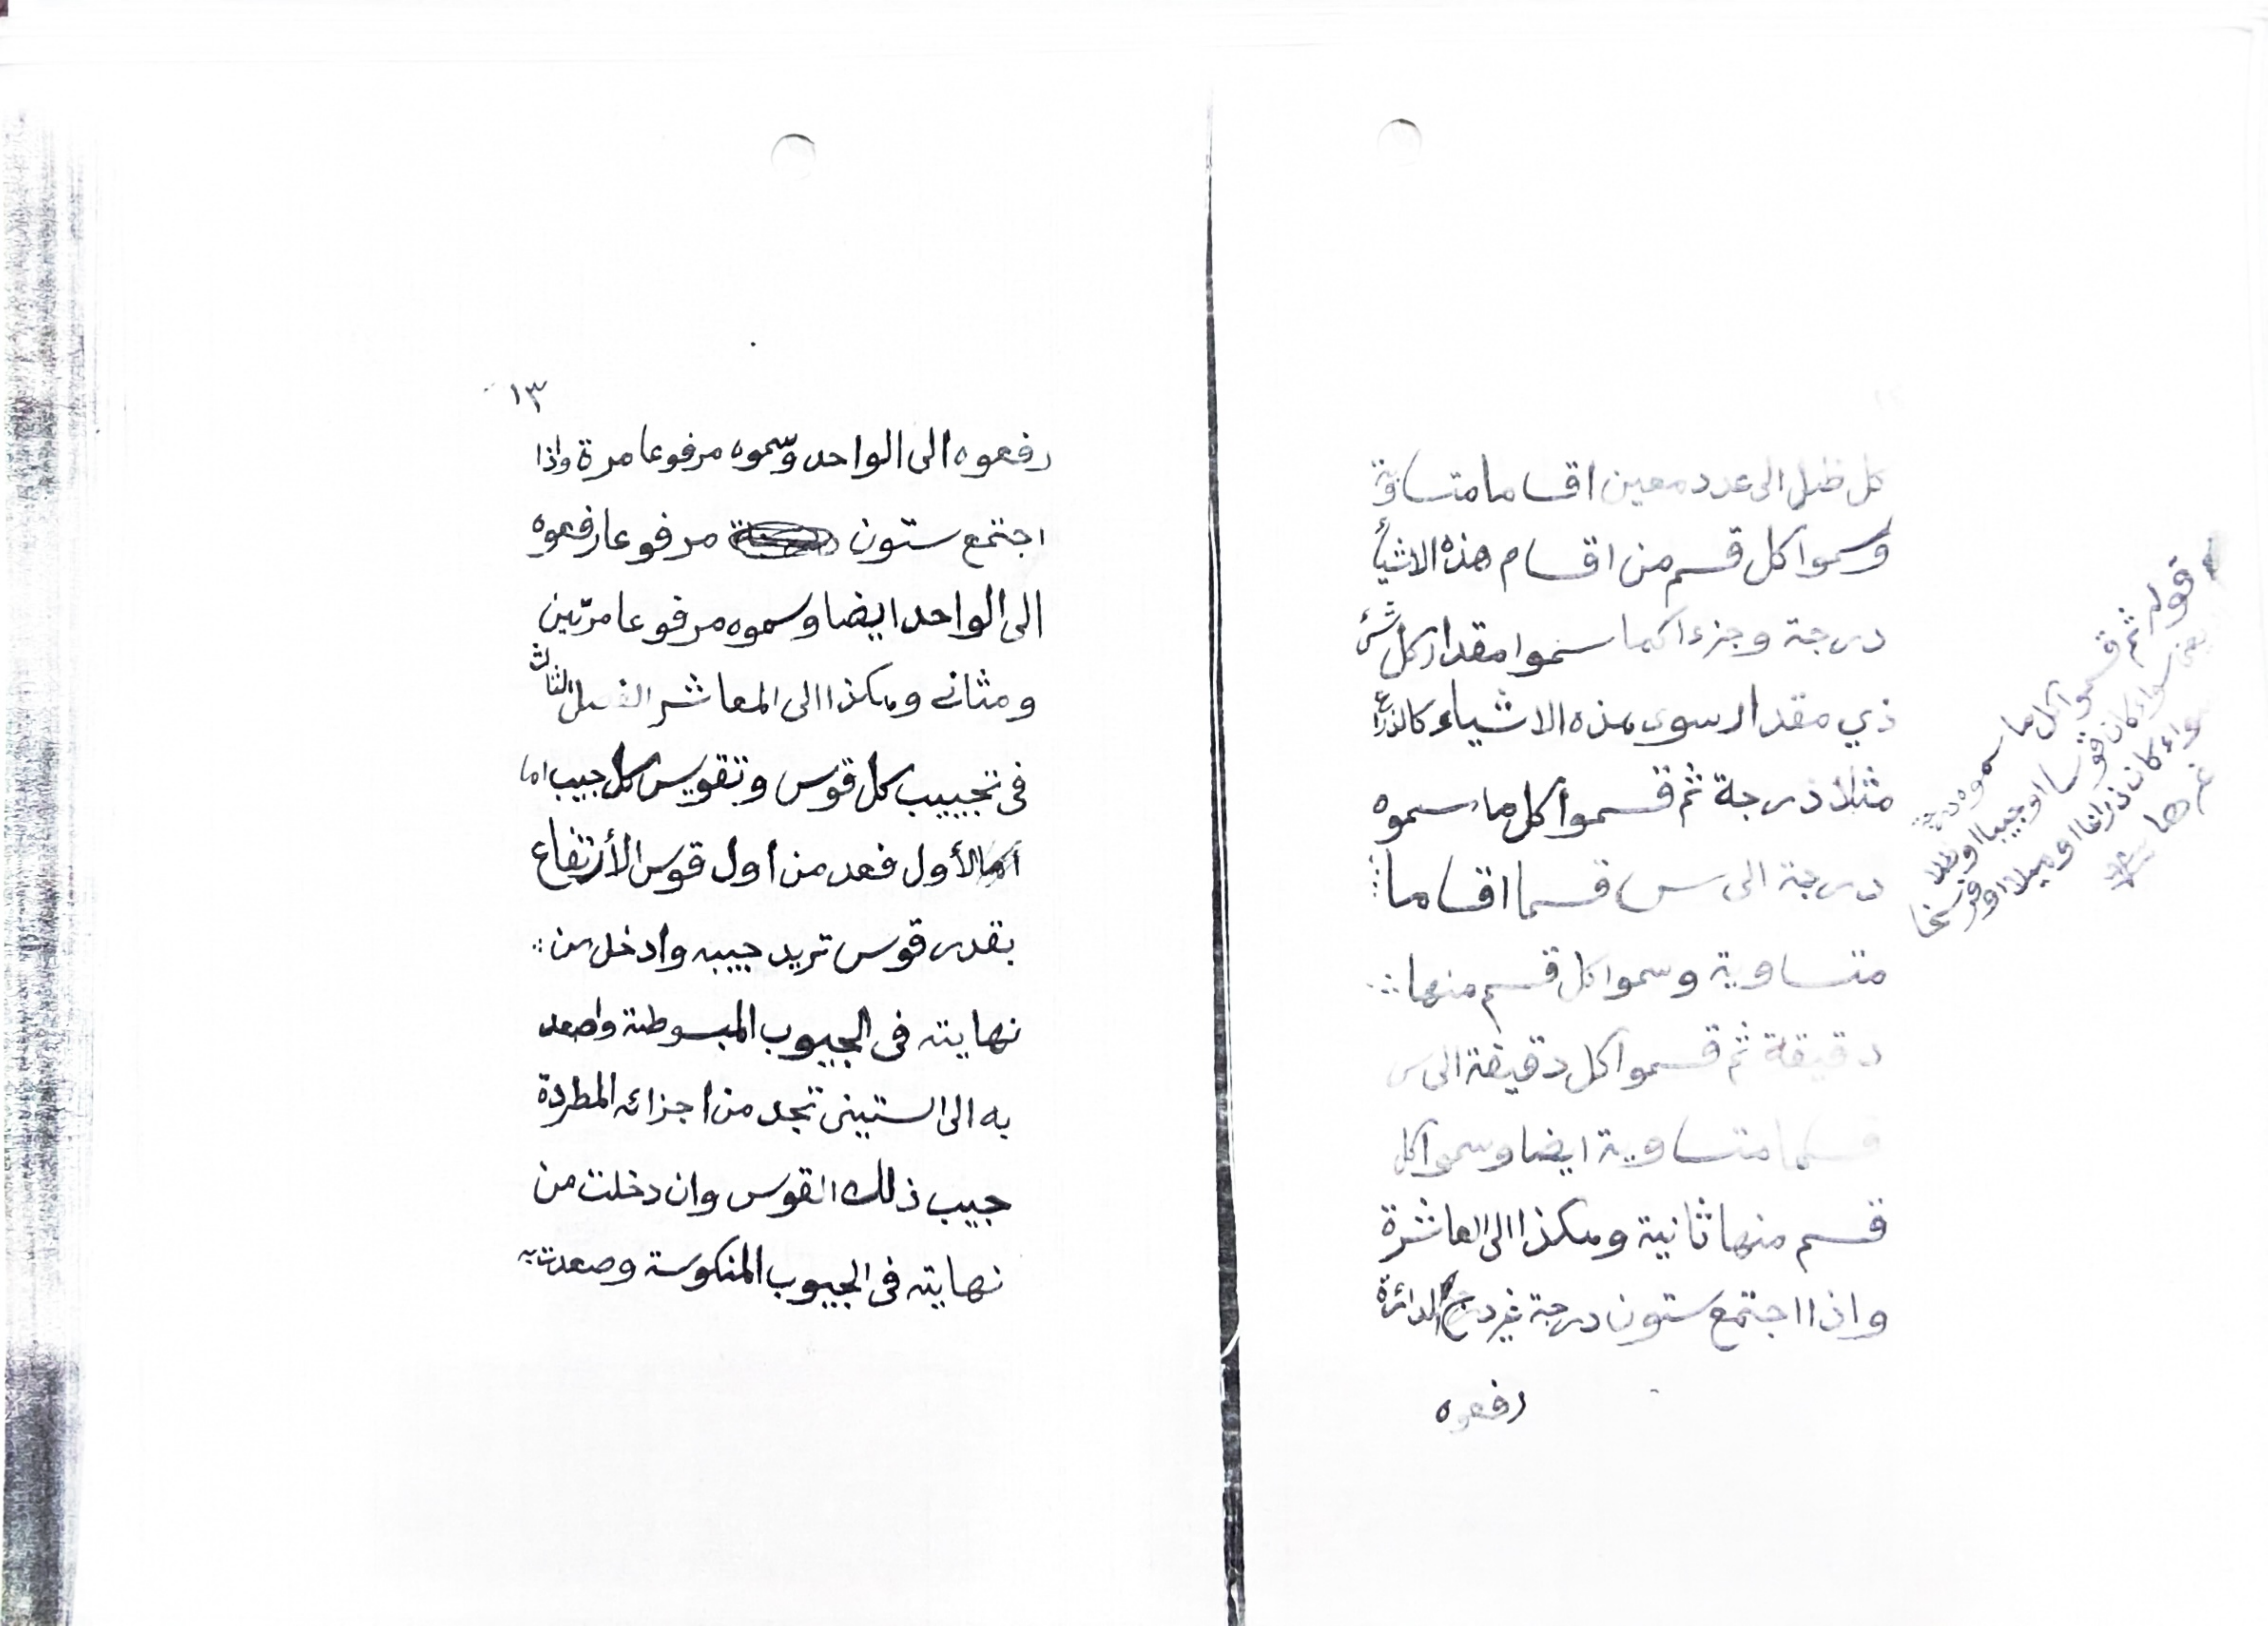 كل ظل الى عدد معين اقساما متساوية
وسموا كل قسم من اقسام هذه الاشياء
درجة وجزءا كما سموا مقدار كل شئ
ذي مقدار سوى هذه الاشياء كالذراع
مثلا درجة ثم قسموا كل ما سموه
درجة الى س قسما اقساما
متساوية وسموا كل قسم منها
دقيقة ثم قسموا كل دقيقة الى س
قسما متساوية ايضا وسموا كل
قسم منها ثانية وهكذا الى العاشرة
واذا اجتمع ستون درجة غير درج الدائرة
رفعوه
قوله ثم قسموا كل ما سموه درجة
يعني سواء كان قوسا او جيبا او ظلا
سواء كان ذراعا او ميلا او فرسخا
غيرها
١٣
رفعوه الى الواحد وسموه مرفوعا مرة واذا
اجتمع ستون مرفوعا رفعوه
الى الواحد ايضا وسموه مرفوعا مرتين
ومثانى وهكذا الى المعاشر الفصل الثالث
فى تجييب كل قوس وتقويس كل جيب اما
الأول فعد من اول قوس الأرتفاع
بقدر قوس تريد جيبه وادخل من
نهايته فى الجيوب المبسوطة واصعد
به الى الستينى تجد من اجزائه المطردة
جيب ذلك القوس وان دخلت من
نهايته فى الجيوب المنكوسة وصعدت به